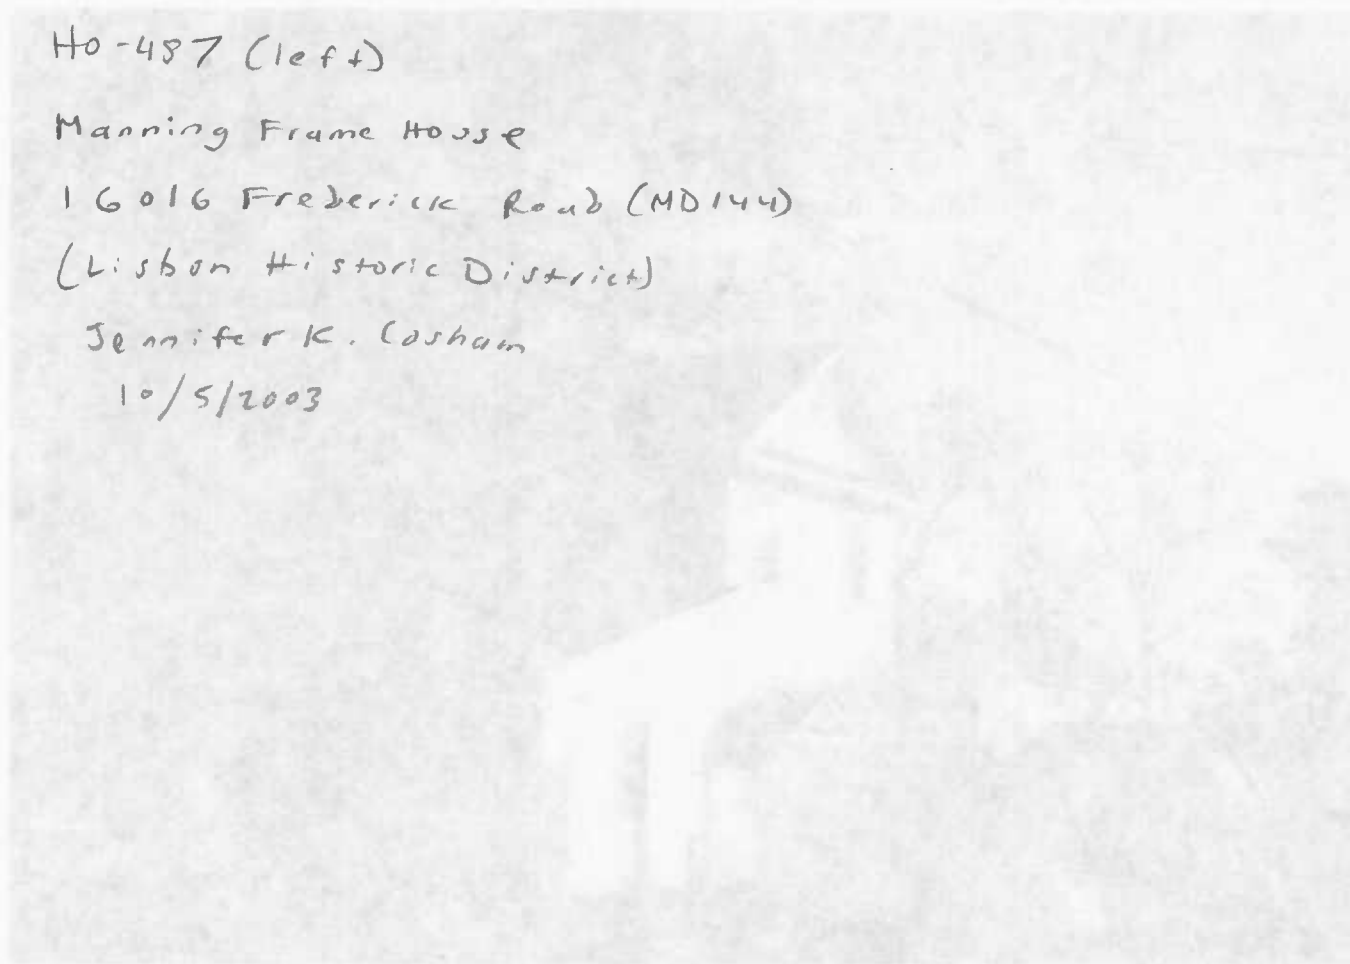 HO-487 (left)
Manning Frame House
16016 Frederick Road (MD144)
(Lisbon Historic District)
Jennifer K. Cosham
10/5/2003